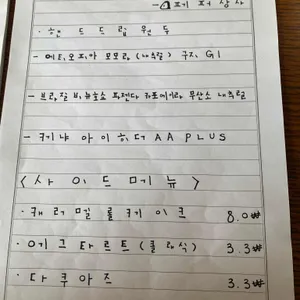 · 핸드드립 원두
- 에티오피아 모모라 (내추럴) 구지 G1
- 브라질 파젠다 카포에이라 무산소 내추럴
- 케냐 아이히더 AA PLUS
<사이드메뉴>
· 캐러멜 롤케이크 8.0₩
· 에그타르트 (클래식) 3.3₩
· 다쿠아즈 3.3₩